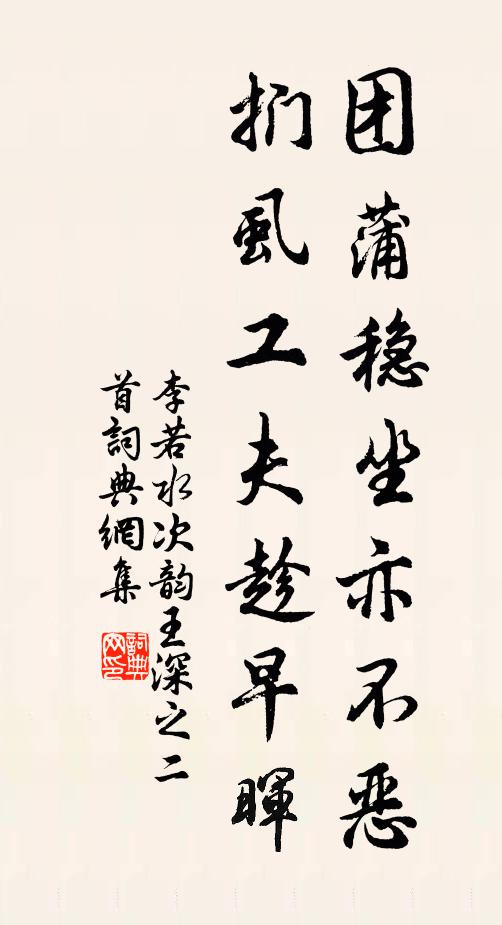 团蒲稳坐亦不恶
扪虱工夫趁早暉
李若水次韵王深之二
首詞典網集
詞典
网印